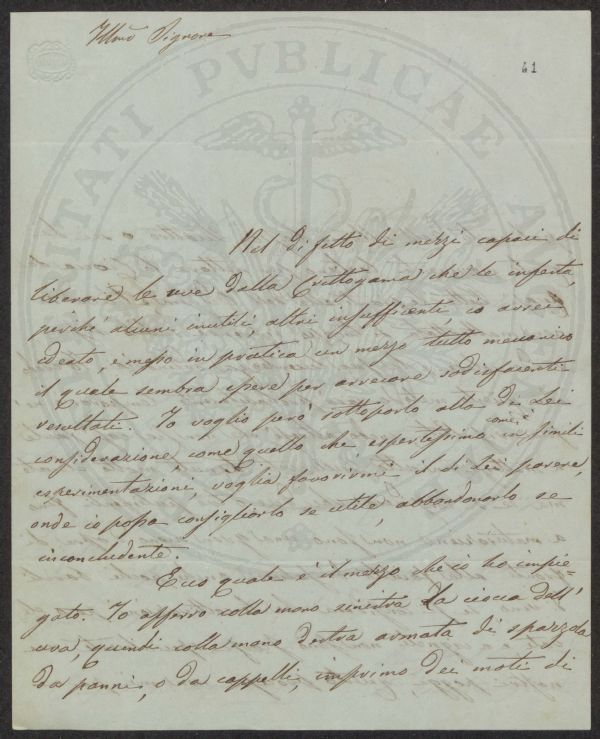 Illmo Signore
41
Nel difetto di mezzi capaci di
liberare le uve dalla Crittogama che le infesta,
perché alcuni inutili, altri insufficienti, io avrei
ideato, e messo in pratica un mezzo tutto meccanico
il quale sembra essere per arrecare sodisfacenti
resultati. Io voglio però sottoporlo alla di Lei
considerazione come quello che espertissimo com'è in simili
esperimentazioni, voglia favorirmi il di Lei parere,
onde io possa consigliarlo se utile, abbandonarlo se
inconcludente.
Ecco quale è il mezzo che io ho impie=
gato. Io afferro colla mano sinistra la ciocca dell'
uva, quindi colla mano destra armata di spazzola
da panni, o da cappelli, imprimo dei moti di
PVBLICAE